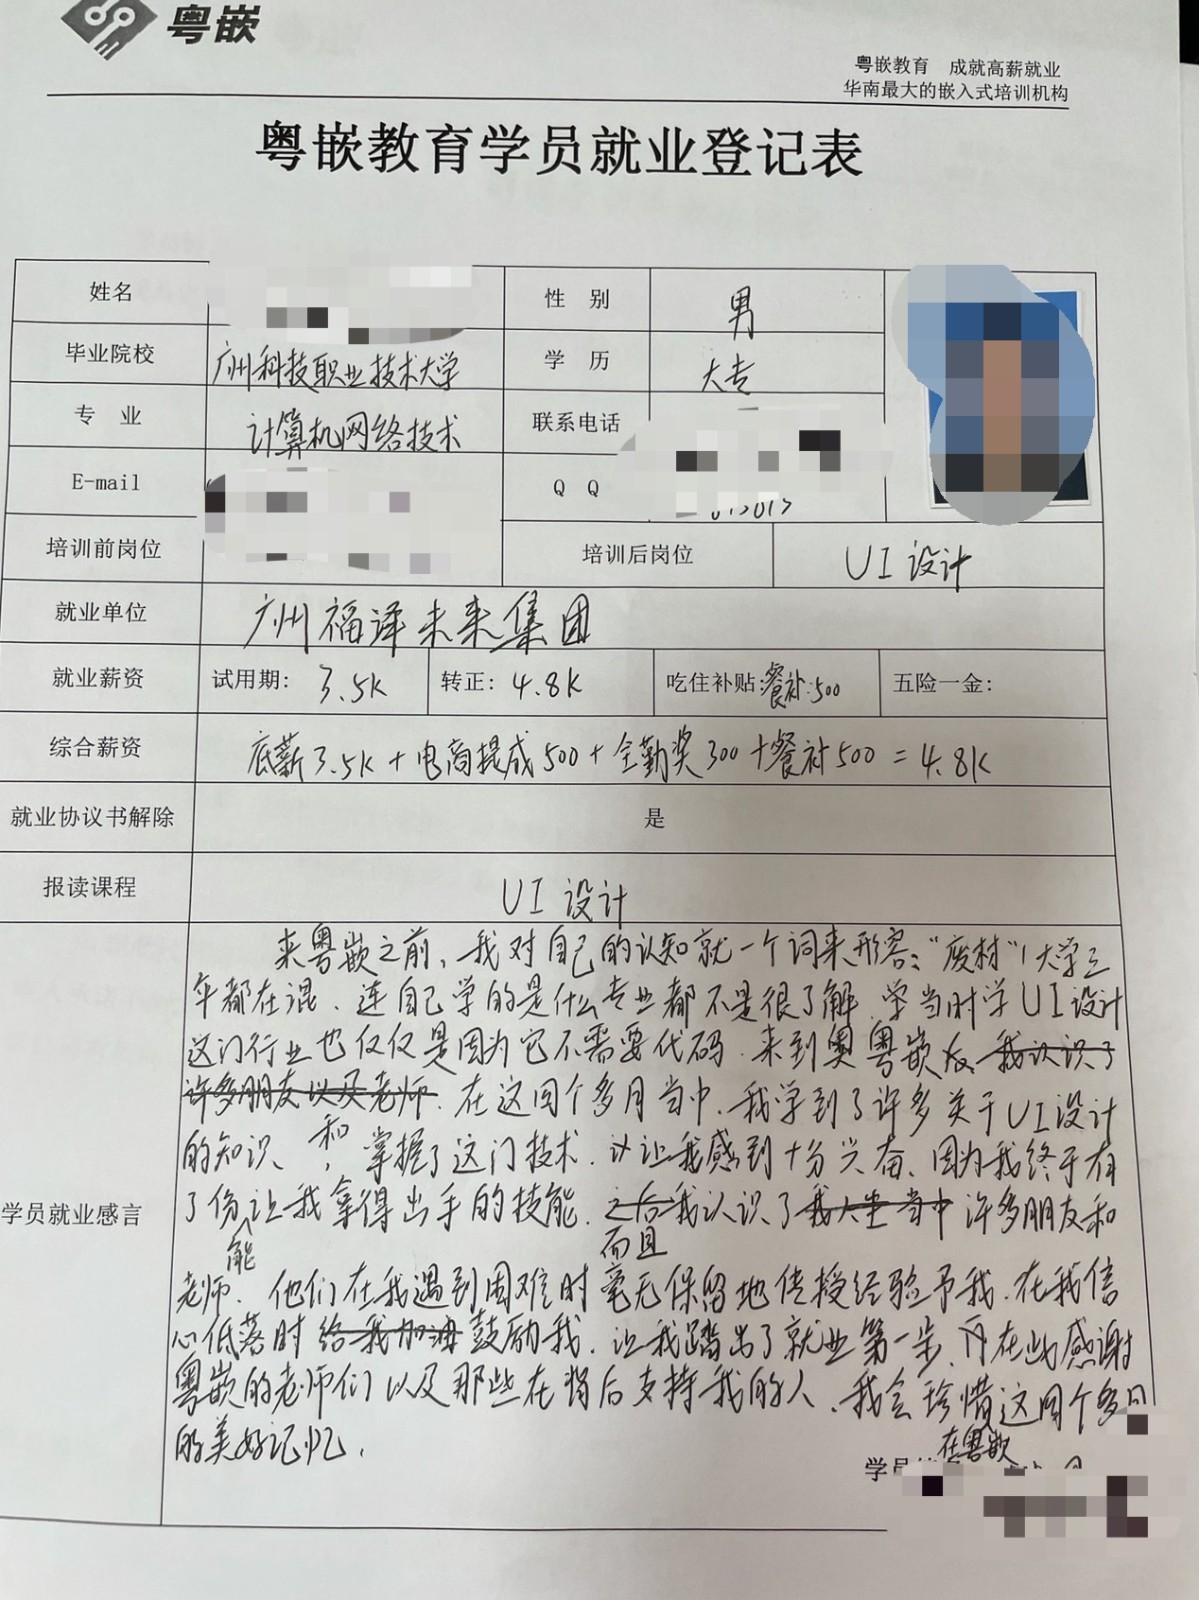 粤嵌
粤嵌教育 成就高薪就业
华南最大的嵌入式培训机构
粤嵌教育学员就业登记表
姓名 性 别 男
毕业院校 广州科技职业技术大学 学 历 大专
专 业 计算机网络技术 联系电话
E-mail Q Q
培训前岗位 培训后岗位 UI 设计
就业单位 广州福泽未来集团
就业薪资 试用期: 3.5K 转正: 4.8K 吃住补贴:餐补:500 五险一金:
综合薪资 底薪3.5K+电商提成500+全勤奖300+餐补500=4.8K
就业协议书解除 是
报读课程 UI 设计
学员就业感言
来粤嵌之前,我对自己的认知就一个词来形容:"废材"!大学三
年都在混.连自己学的是什么专业都不是很了解.学当时学UI设计
这门行业也仅仅是因为它不需要代码.来到 粤嵌后 我认识了
许多朋友以及老师.在这四个多月当中.我学到了许多关于UI设计
的知识、和,掌握了这门技术.让我感到十分兴奋、因为我终于有
了份能让我拿得出手的技能.之后而且我认识了 当中 许多朋友和
老师.他们在我遇到困难时毫无保留地传授经验予我.在我信
心低落时给我加油鼓励我.让我踏出了就业第一步.再在此感谢
粤嵌的老师们以及那些在背后支持我的人.我会珍惜这四个多月
在粤嵌
的美好记忆.
学员